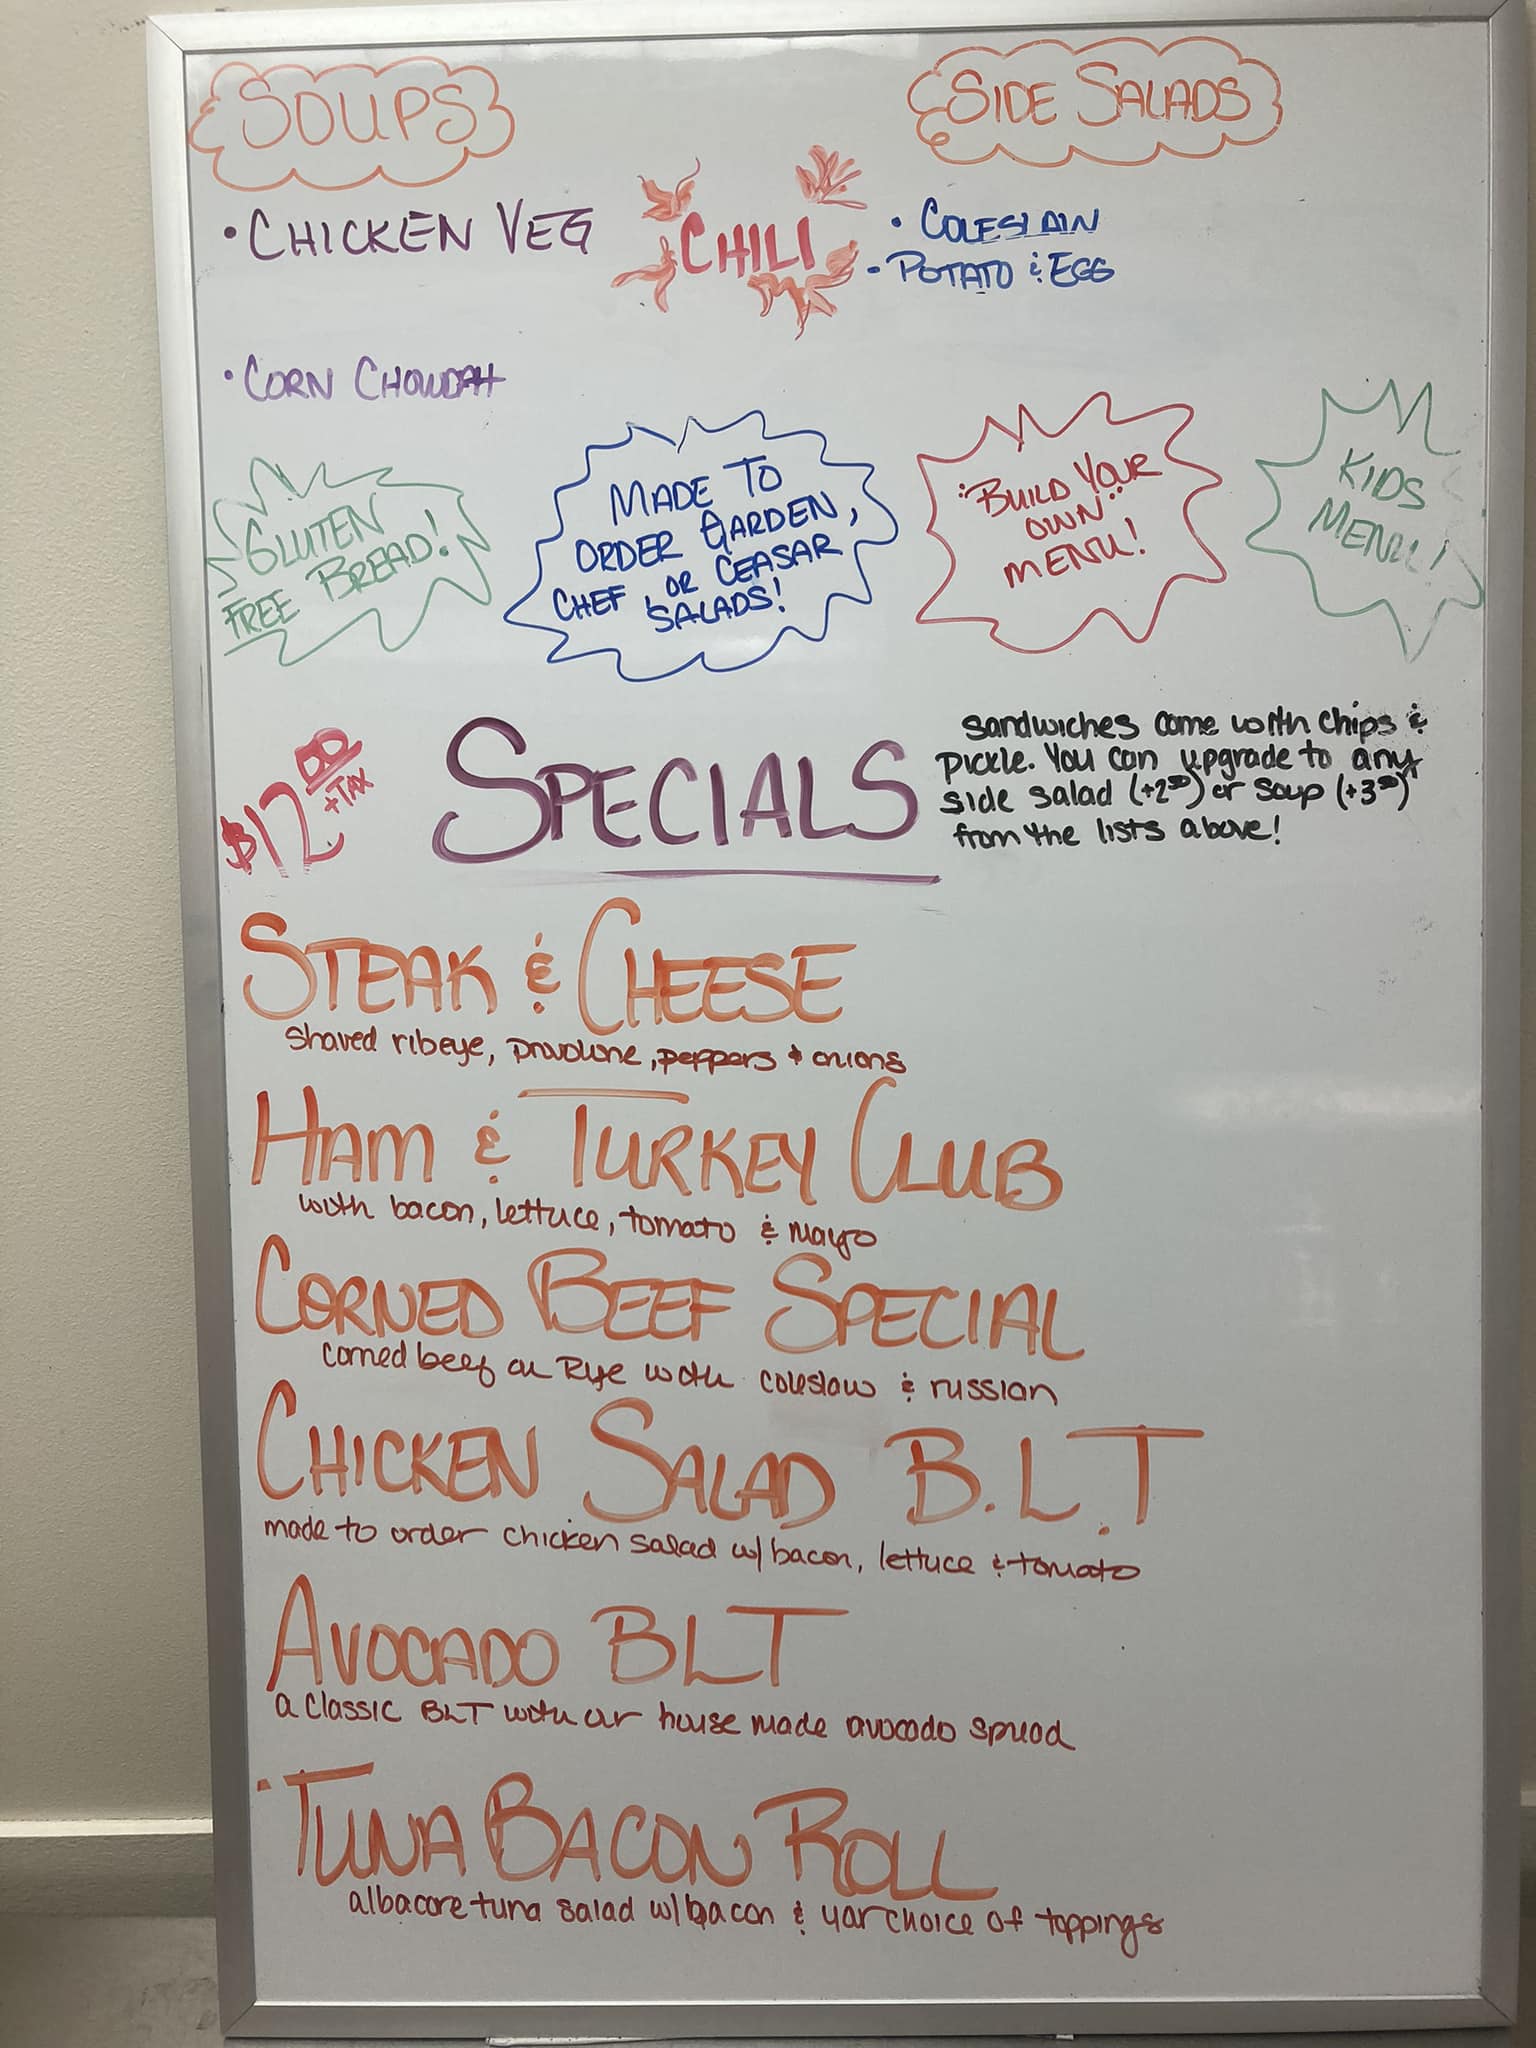 SOUPS
SIDE SALADS
• CHICKEN VEG
CHILI
• COLESLAW
- POTATO & EGG
• CORN CHOWDAH
GLUTEN
FREE BREAD!
MADE TO
ORDER GARDEN,
CHEF, OR CEASAR
SALADS!
"BUILD YOUR
OWN"
MENU!
KIDS
MENU!
$12.00
+TAX
SPECIALS
Sandwiches come with chips &
pickle. You can upgrade to any
side salad (+2.50) or soup (+3.50)
from the lists above!
STEAK & CHEESE
shaved ribeye, provolone, peppers + onions
HAM & TURKEY CLUB
with bacon, lettuce, tomato & mayo
CORNED BEEF SPECIAL
corned beef on Rye with coleslaw & russian
CHICKEN SALAD B.L.T
made to order chicken salad w/ bacon, lettuce & tomato
AVOCADO BLT
a classic BLT with our house made avocado spread
• TUNA BACON ROLL
albacore tuna salad w/ bacon & your choice of toppings